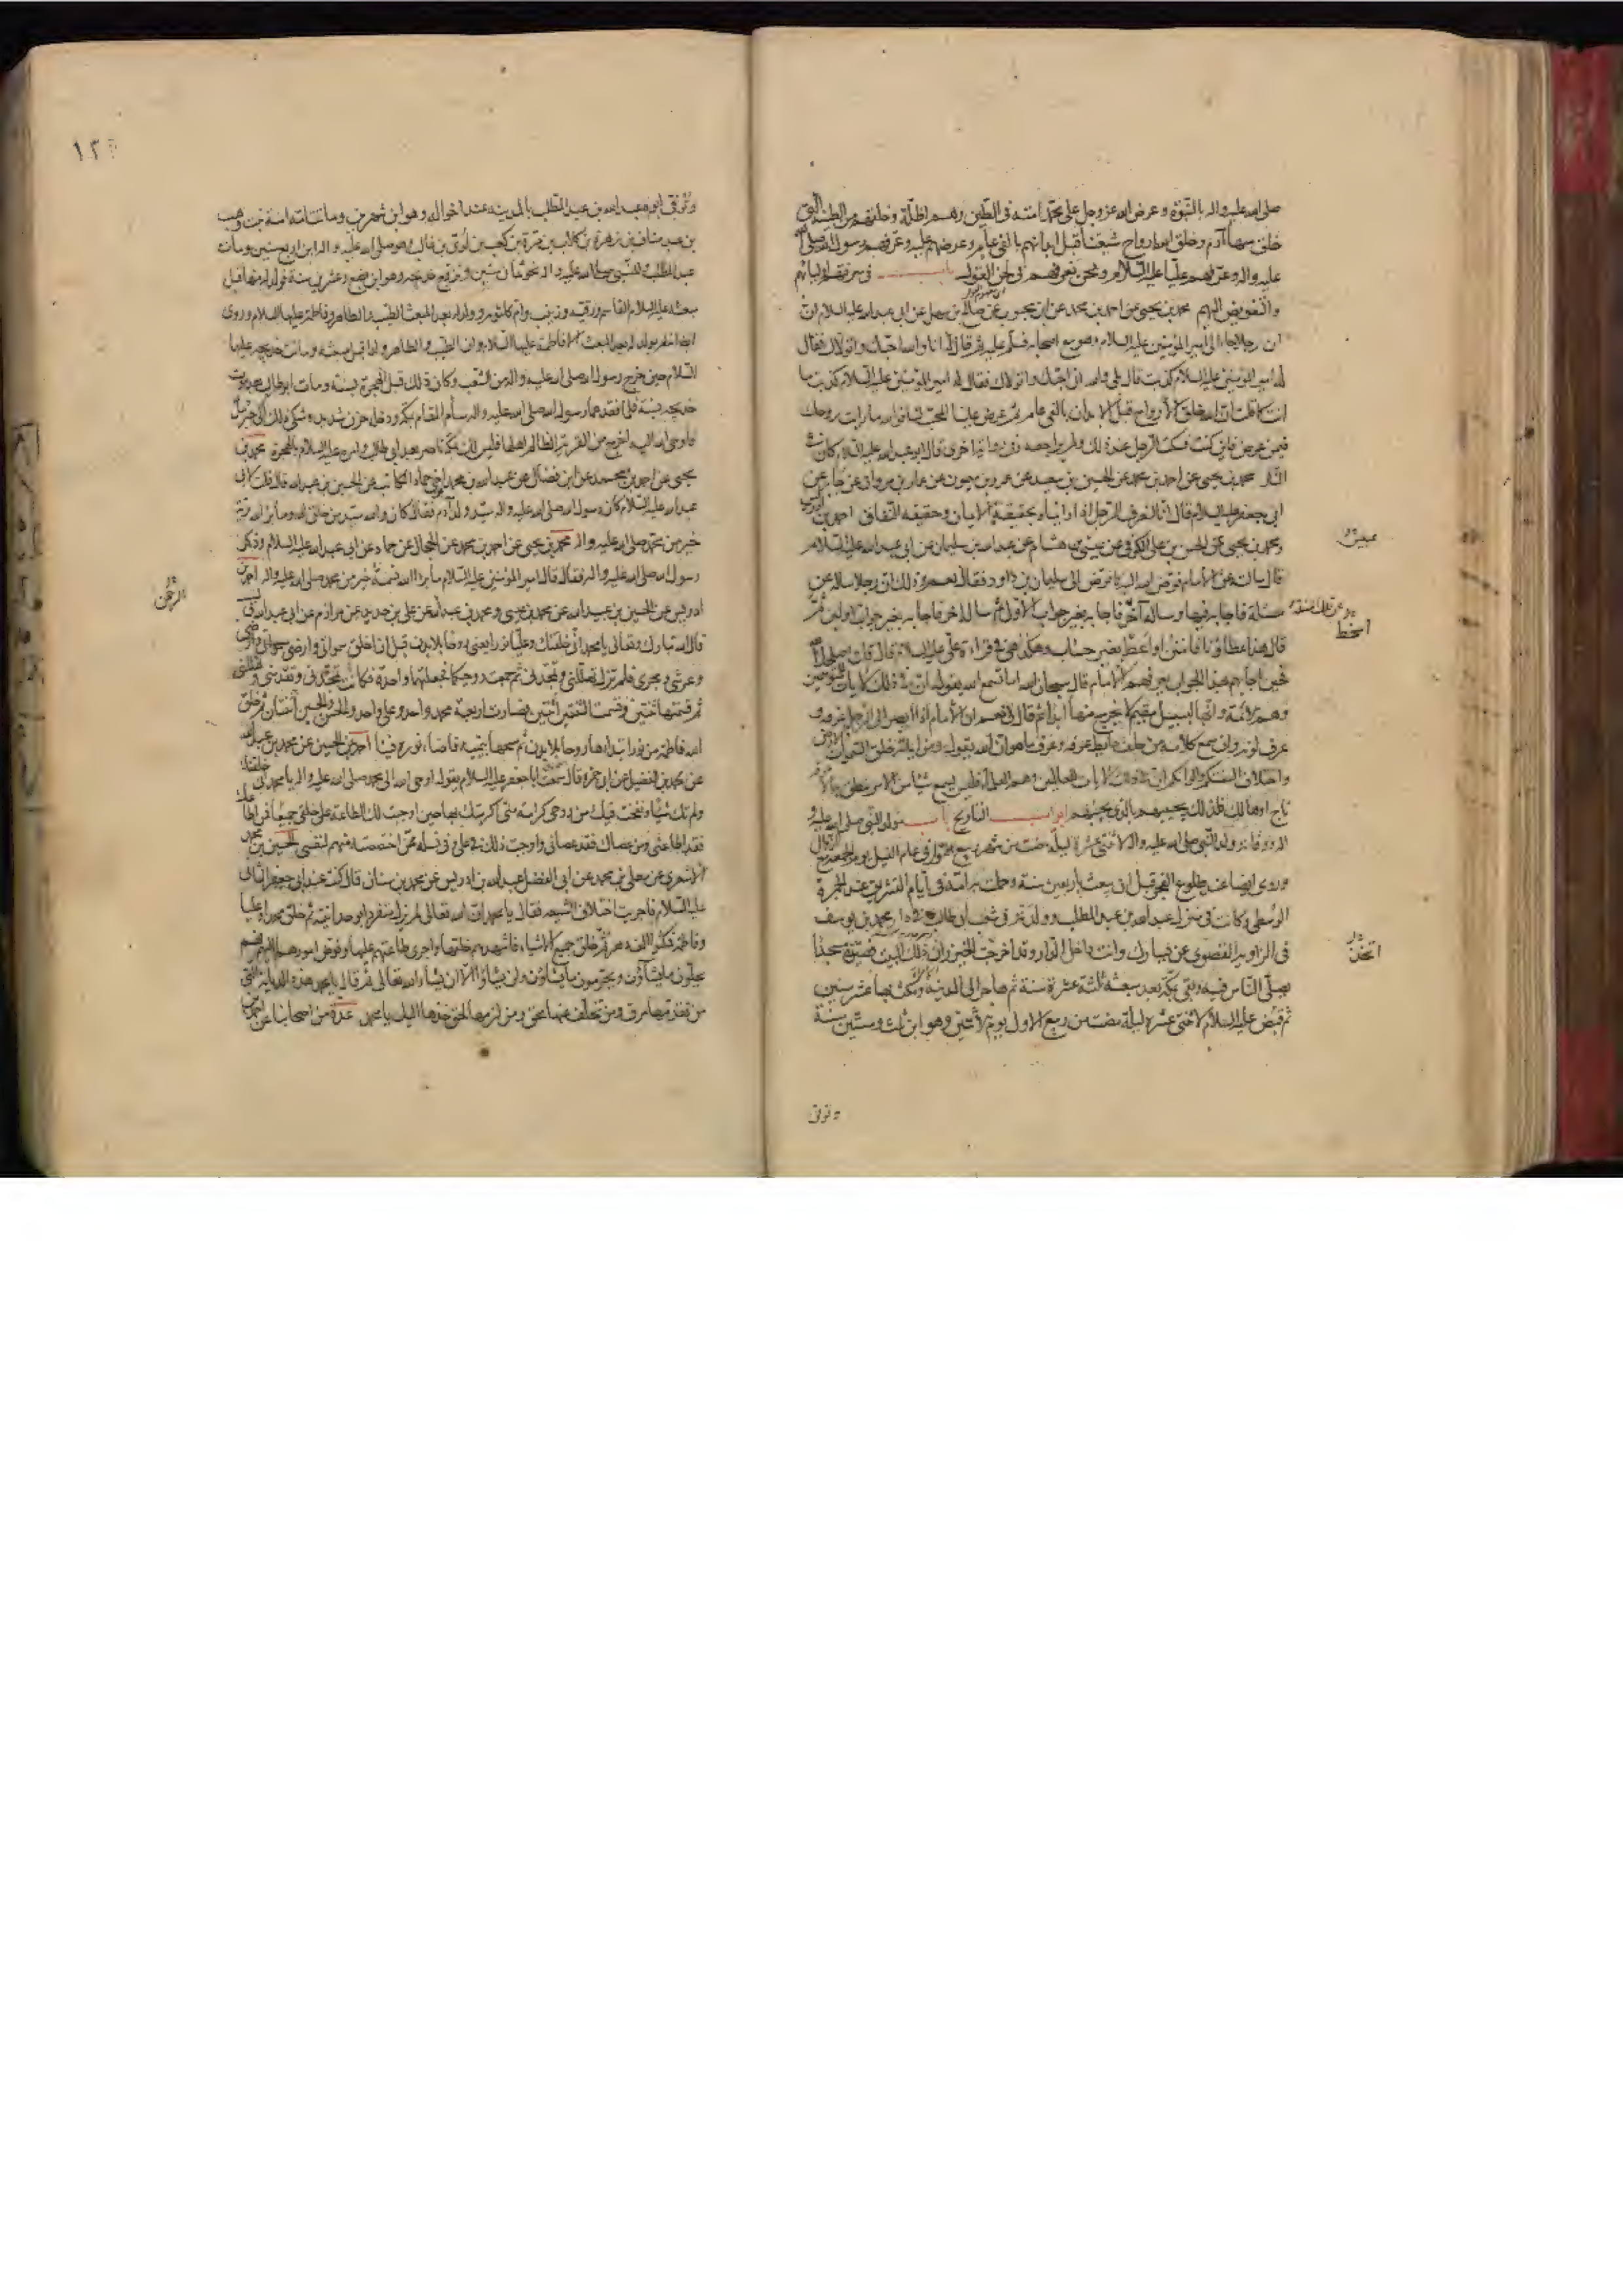 صلى الله عليه واله بالنبوة وعرض الله عز وجل على محمد امته في الطين وهم اظلة وخلقهم من الطينة التي
خلق منها آدم وخلق الله ارواح شيعتنا قبل ابدانهم بالفي عام وعرضهم عليه وعرفهم رسول الله صلى الله
عليه واله وعرفهم عليا عليه السلام ونحن نعرفهم في لحن القول باب في معرفتهم اوليائهم
والتفويض اليهم محمد بن يحيى عن احمد بن محمد عن ابن محبوب عن صالح بن سهل عن ابي عبد الله عليه السلام
ان رجلا جاء الى امير المؤمنين عليه السلام وهو مع اصحابه فسلم عليه ثم قال له انا والله احبك واتولاك فقال
له امير المؤمنين عليه السلام كذبت قال بلى والله اني احبك واتولاك فقال له امير المؤمنين عليه السلام كذبت ما
انت كما قلت ان الله خلق الارواح قبل الابدان بالفي عام ثم عرض علينا المحب لنا فوالله ما رايت روحك
فيمن عرض فاين كنت فسكت الرجل عند ذلك ولم يراجعه وفي رواية اخرى قال ابو عبد الله عليه السلام كان في
النار محمد بن يحيى عن احمد بن محمد عن الحسين بن سعيد عن عمرو بن ميمون عن عمار بن مروان عن جابر عن
ابي جعفر عليه السلام قال انا لنعرف الرجل اذا رايناه بحقيقة الايمان وحقيقة النفاق احمد بن ادريس
ومحمد بن يحيى عن الحسن بن علي الكوفي عن عبيس بن هشام عن عبد الله بن سليمان عن ابي عبد الله عليه السلام
قال سالته عن الامام فوض الله اليه كما فوض الى سليمان بن داود فقال نعم وذلك ان رجلا ساله عن
مسئلة فاجابه فيها وساله آخر فاجابه بغير جواب الاول ثم ساله آخر فاجابه بغير جواب الاولين ثم
قال هذا عطاؤنا فامنن او اعط بغير حساب وهكذا هي في قراءة علي عليه السلام قال قلت اصلحك الله
فحين اجابهم بهذا الجواب يعرفهم الامام قال سبحان الله اما تسمع الله يقول ان في ذلك لايات للمتوسمين
وهم الائمة وانها لبسبيل مقيم لا يخرج منها ابدا ثم قال لي نعم ان الامام اذا ابصر الى الرجل عرفه و
عرف لونه وان سمع كلامه من خلف حائط عرفه وعرف ما هو ان الله يقول ومن اياته خلق السموات والارض
واختلاف السنتكم والوانكم ان في ذلك لايات للعالمين وهم العلماء فليس يسمع شيئا من الامر ينطق به الا عرفه
ناج او هالك فلذلك يجيبهم بالذي يجيبهم ابواب التاريخ باب مولد النبي صلى الله عليه و
اله ووفاته ولد النبي صلى الله عليه واله لاثنتي عشرة ليلة مضت من شهر ربيع الاول في عام الفيل يوم الجمعة مع الزوال
وروي ايضا عند طلوع الفجر قبل ان يبعث باربعين سنة وحملت به امه في ايام التشريق عند الجمرة
الوسطى وكانت في منزل عبد الله بن عبد المطلب وولدته في شعب ابي طالب في دار محمد بن يوسف
في الزاوية القصوى عن يسارك وانت داخل الدار وقد اخرجت الخيزران ذلك البيت فصيرته مسجدا
يصلي الناس فيه وبقي بمكة بعد مبعثه ثلثة عشرة سنة ثم هاجر الى المدينة ومكث بها عشر سنين
ثم قبض عليه السلام لاثنتي عشرة ليلة مضت من ربيع الاول يوم الاثنين وهو ابن ثلث وستين سنة
عبيس
اتخذ
وتوفي
وتوفي ابوه عبد الله بن عبد المطلب بالمدينة عند اخواله وهو ابن شهرين وماتت امه آمنة بنت وهب
بن عبد مناف بن زهرة بن كلاب بن مرة بن كعب بن لؤي بن غالب وهو صلى الله عليه واله ابن اربع سنين ومات
عبد المطلب وللنبي صلى الله عليه واله نحو ثمان سنين وتزوج خديجة وهو ابن بضع وعشرين سنة فولد له منها قبل
مبعثه عليه السلام القاسم ورقية وزينب وام كلثوم وولد له بعد المبعث الطيب والطاهر وفاطمة عليها السلام وروي
ايضا انه لم يولد له بعد المبعث الا فاطمة عليها السلام وان الطيب والطاهر ولدا قبل مبعثه وماتت خديجة عليها
السلام حين خرج رسول الله صلى الله عليه واله من الشعب وكان ذلك قبل الهجرة بسنة ومات ابو طالب بعد موت
خديجة بسنة فلما فقدهما رسول الله صلى الله عليه واله سام المقام بمكة ودخله حزن شديد وشكى ذلك الى جبرئيل
فاوحى الله اليه اخرج من القرية الظالم اهلها فليس لك بمكة ناصر بعد ابي طالب وامره عليه السلام بالهجرة محمد بن
يحيى عن احمد بن محمد عن ابن فضال عن عبد الله بن محمد ابن اخي حماد الكاتب عن الحسين بن عبد الله قال قلت لابي
عبد الله عليه السلام كان رسول الله صلى الله عليه واله سيد ولد آدم فقال كان والله سيد من خلق الله وما برا الله برية
خير من محمد صلى الله عليه واله محمد بن يحيى عن احمد بن محمد عن الحجال عن حماد عن ابي عبد الله عليه السلام وذكر
رسول الله صلى الله عليه واله فقال قال امير المؤمنين عليه السلام ما برا الله نسمة خير من محمد صلى الله عليه واله احمد بن
ادريس عن الحسين بن عبيد الله عن محمد بن عيسى ومحمد بن عبد الله عن علي بن حديد عن مرازم عن ابي عبد الله
قال الله تبارك وتعالى يا محمد اني خلقتك وعليا نورا يعني روحا بلا بدن قبل ان اخلق سمواتي وارضي
وعرشي وبحري فلم تزل تهللني وتمجدني ثم جمعت روحيكما فجعلتهما واحدة فكانت تمجدني وتقدسني وتهللني
ثم قسمتها ثنتين وقسمت الثنتين ثنتين فصارت اربعة محمد واحد وعلي واحد والحسن والحسين اثنتان ثم خلق
الله فاطمة من نور ابتداها روحا بلا بدن ثم مسحنا بيمينه فافضا نوره فينا احمد عن الحسين عن محمد بن عبد الله
عن محمد بن الفضيل عن ابي حمزة قال سمعت ابا جعفر عليه السلام يقول اوحى الله الى محمد صلى الله عليه واله يا محمد اني خلقتك
ولم تك شيئا ونفخت فيك من روحي كرامة مني اكرمتك بها حين اوجبت لك الطاعة على خلقي جميعا فمن اطاعك
فقد اطاعني ومن عصاك فقد عصاني واوجبت ذلك في علي وفي نسله ممن اختصصته منهم لنفسي الحسين بن محمد
الاشعري عن معلى بن محمد عن ابي الفضل عبد الله بن ادريس عن محمد بن سنان قال كنت عند ابي جعفر الثاني
عليه السلام فاجريت اختلاف الشيعة فقال يا محمد ان الله تعالى لم يزل متفردا بوحدانيته ثم خلق محمدا وعليا
وفاطمة فمكثوا الف دهر ثم خلق جميع الاشياء فاشهدهم خلقها واجرى طاعتهم عليها وفوض امورها اليهم فهم
يحلون ما يشاؤن ويحرمون ما يشاؤن ولن يشاؤا الا ان يشاء الله تعالى ثم قال يا محمد هذه الديانة التي
من تقدمها مرق ومن تخلف عنها محق ومن لزمها لحق خذها اليك يا محمد عدة من اصحابنا عن احمد بن